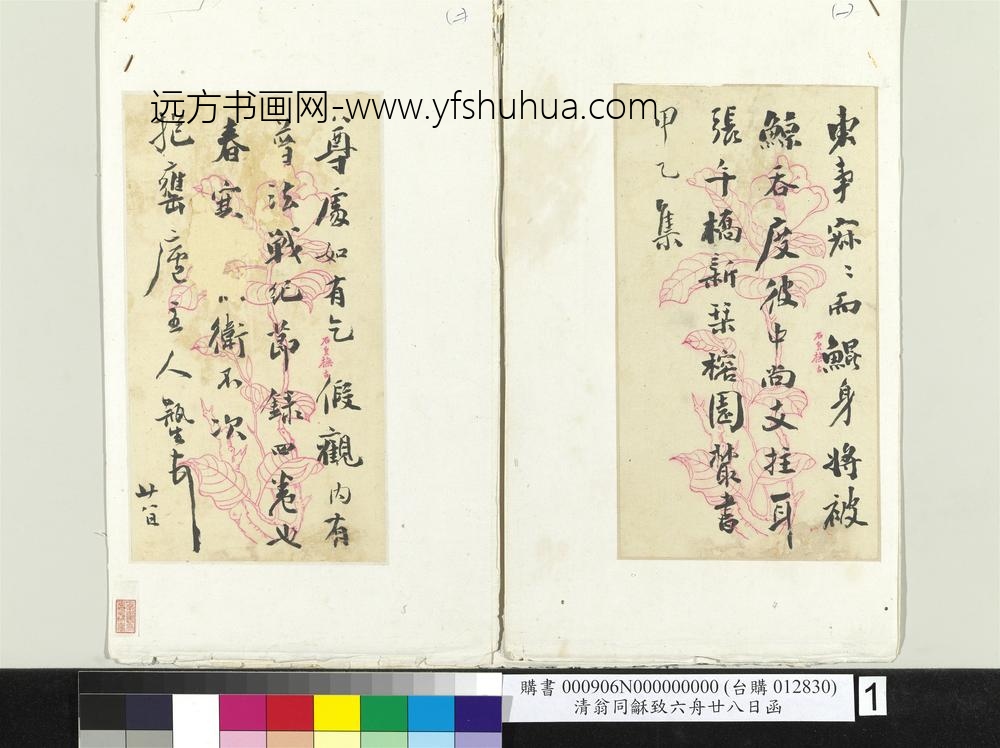 (二)
(一)
远方书画网-www.yfshuhua.com
東事寂〻而鯤身將被
鯨吞度彼中尚支拄耳
張午橋新栞榕園叢書
甲乙集
尊處如有乞假觀內有
普法戰紀節錄四卷也
春寒
以衛不次
抱罋廬主人
廿八日
購書 000906N000000000 (台購 012830)
清翁同龢致六舟廿八日函
1